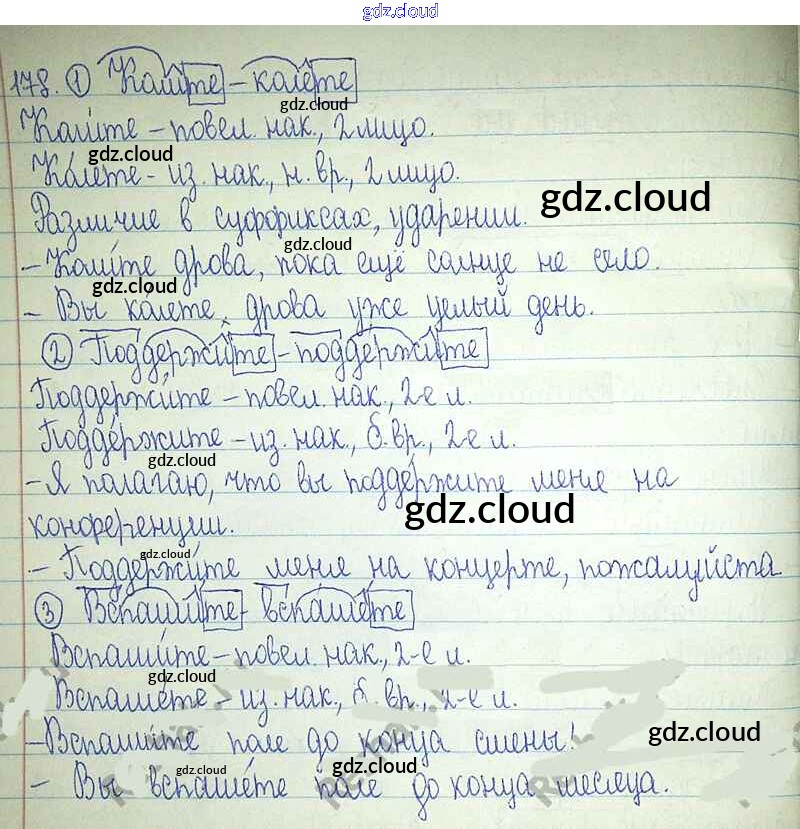 gdz.cloud
178. ① Колите – колете
gdz.cloud
Колите – повел. нак., 2 лицо.
gdz.cloud
Колете – из. нак., н. вр., 2 лицо.
gdz.cloud
Различие в суффиксах, ударении.
gdz.cloud
– Колите дрова, пока ещё солнце не село.
gdz.cloud
– Вы колете дрова уже целый день.
② Поддержите – поддержите
Поддержи́те – повел. нак., 2-е л.
Подде́ржите – из. нак., б. вр., 2-е л.
gdz.cloud
– Я полагаю, что вы подде́ржите меня на
gdz.cloud
конференции.
gdz.cloud
– Поддержи́те меня на концерте, пожалуйста
③ Вспашите – вспашете
gdz.cloud
Вспаши́те – повел. нак., 2-е л.
gdz.cloud
Вспашете – из. нак., б. вр., 2-е л.
– Вспашите поле до конца смены!
gdz.cloud
gdz.cloud
gdz.cloud
– Вы вспашете поле до конца месяца.